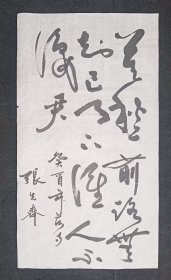 莫愁前路無
知己天下誰人不
識君
癸酉年
張